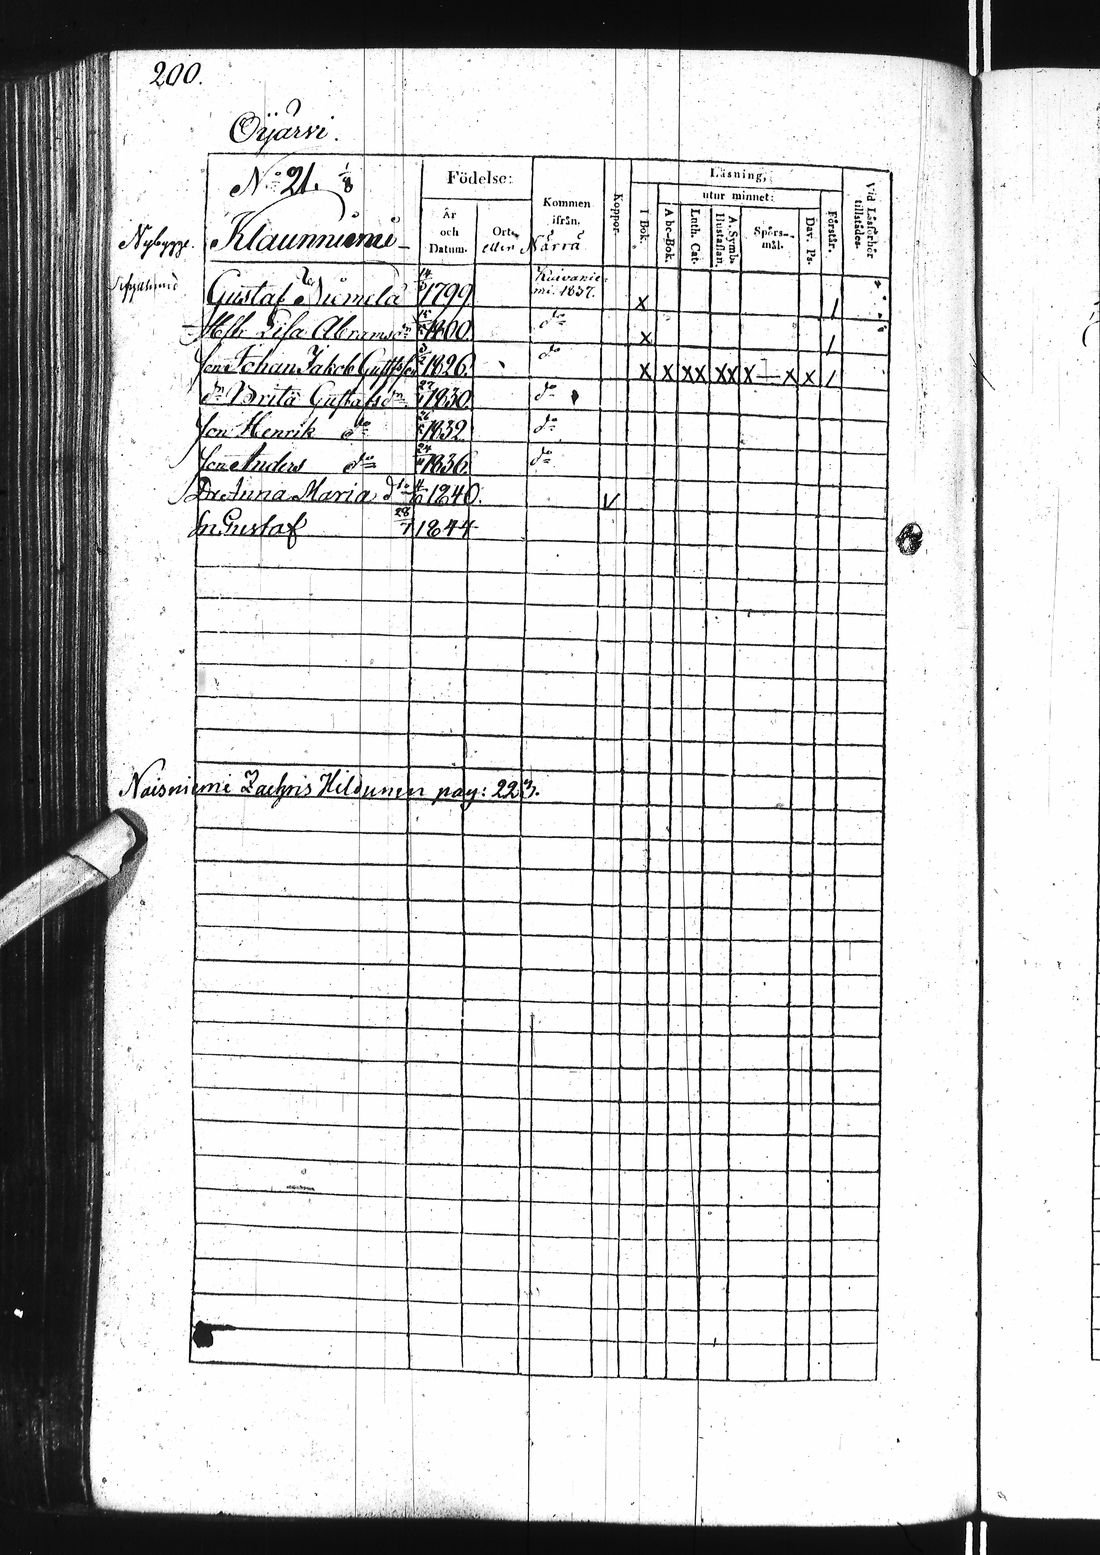 200.
Oijärvi.
No 21. 1/8
Klaunniemi
Nybygge.
Födelse:
År och Datum.
Ort.
eller Närrä
Kommen ifrån.
Koppor.
Läsning,
utur minnet:
I Bok.
Abc-Bok.
Luth. Cat.
A. Symb. Hustaflan.
Spörsmål.
Dav. Ps.
Förstår.
Vid Läsförhör tillstädes.
Gustaf Niemelä 14/3 1799 Kuivaniemi. 1837. x 1
Hstr Lisa Abramsdr 1800. do x 1
Son Johan Jakob Gustfson 1826. do x x xx xx x — x x 1
dr Brita Gustafsdr 27 1830. do
Son Henrik do 26 1832 do
Son Anders do 24 1836 do
Dr Anna Maria do 4 1840. v
Sn Gustaf 28/7 1844
Naisniemi Zachris Hildunen pag: 223.